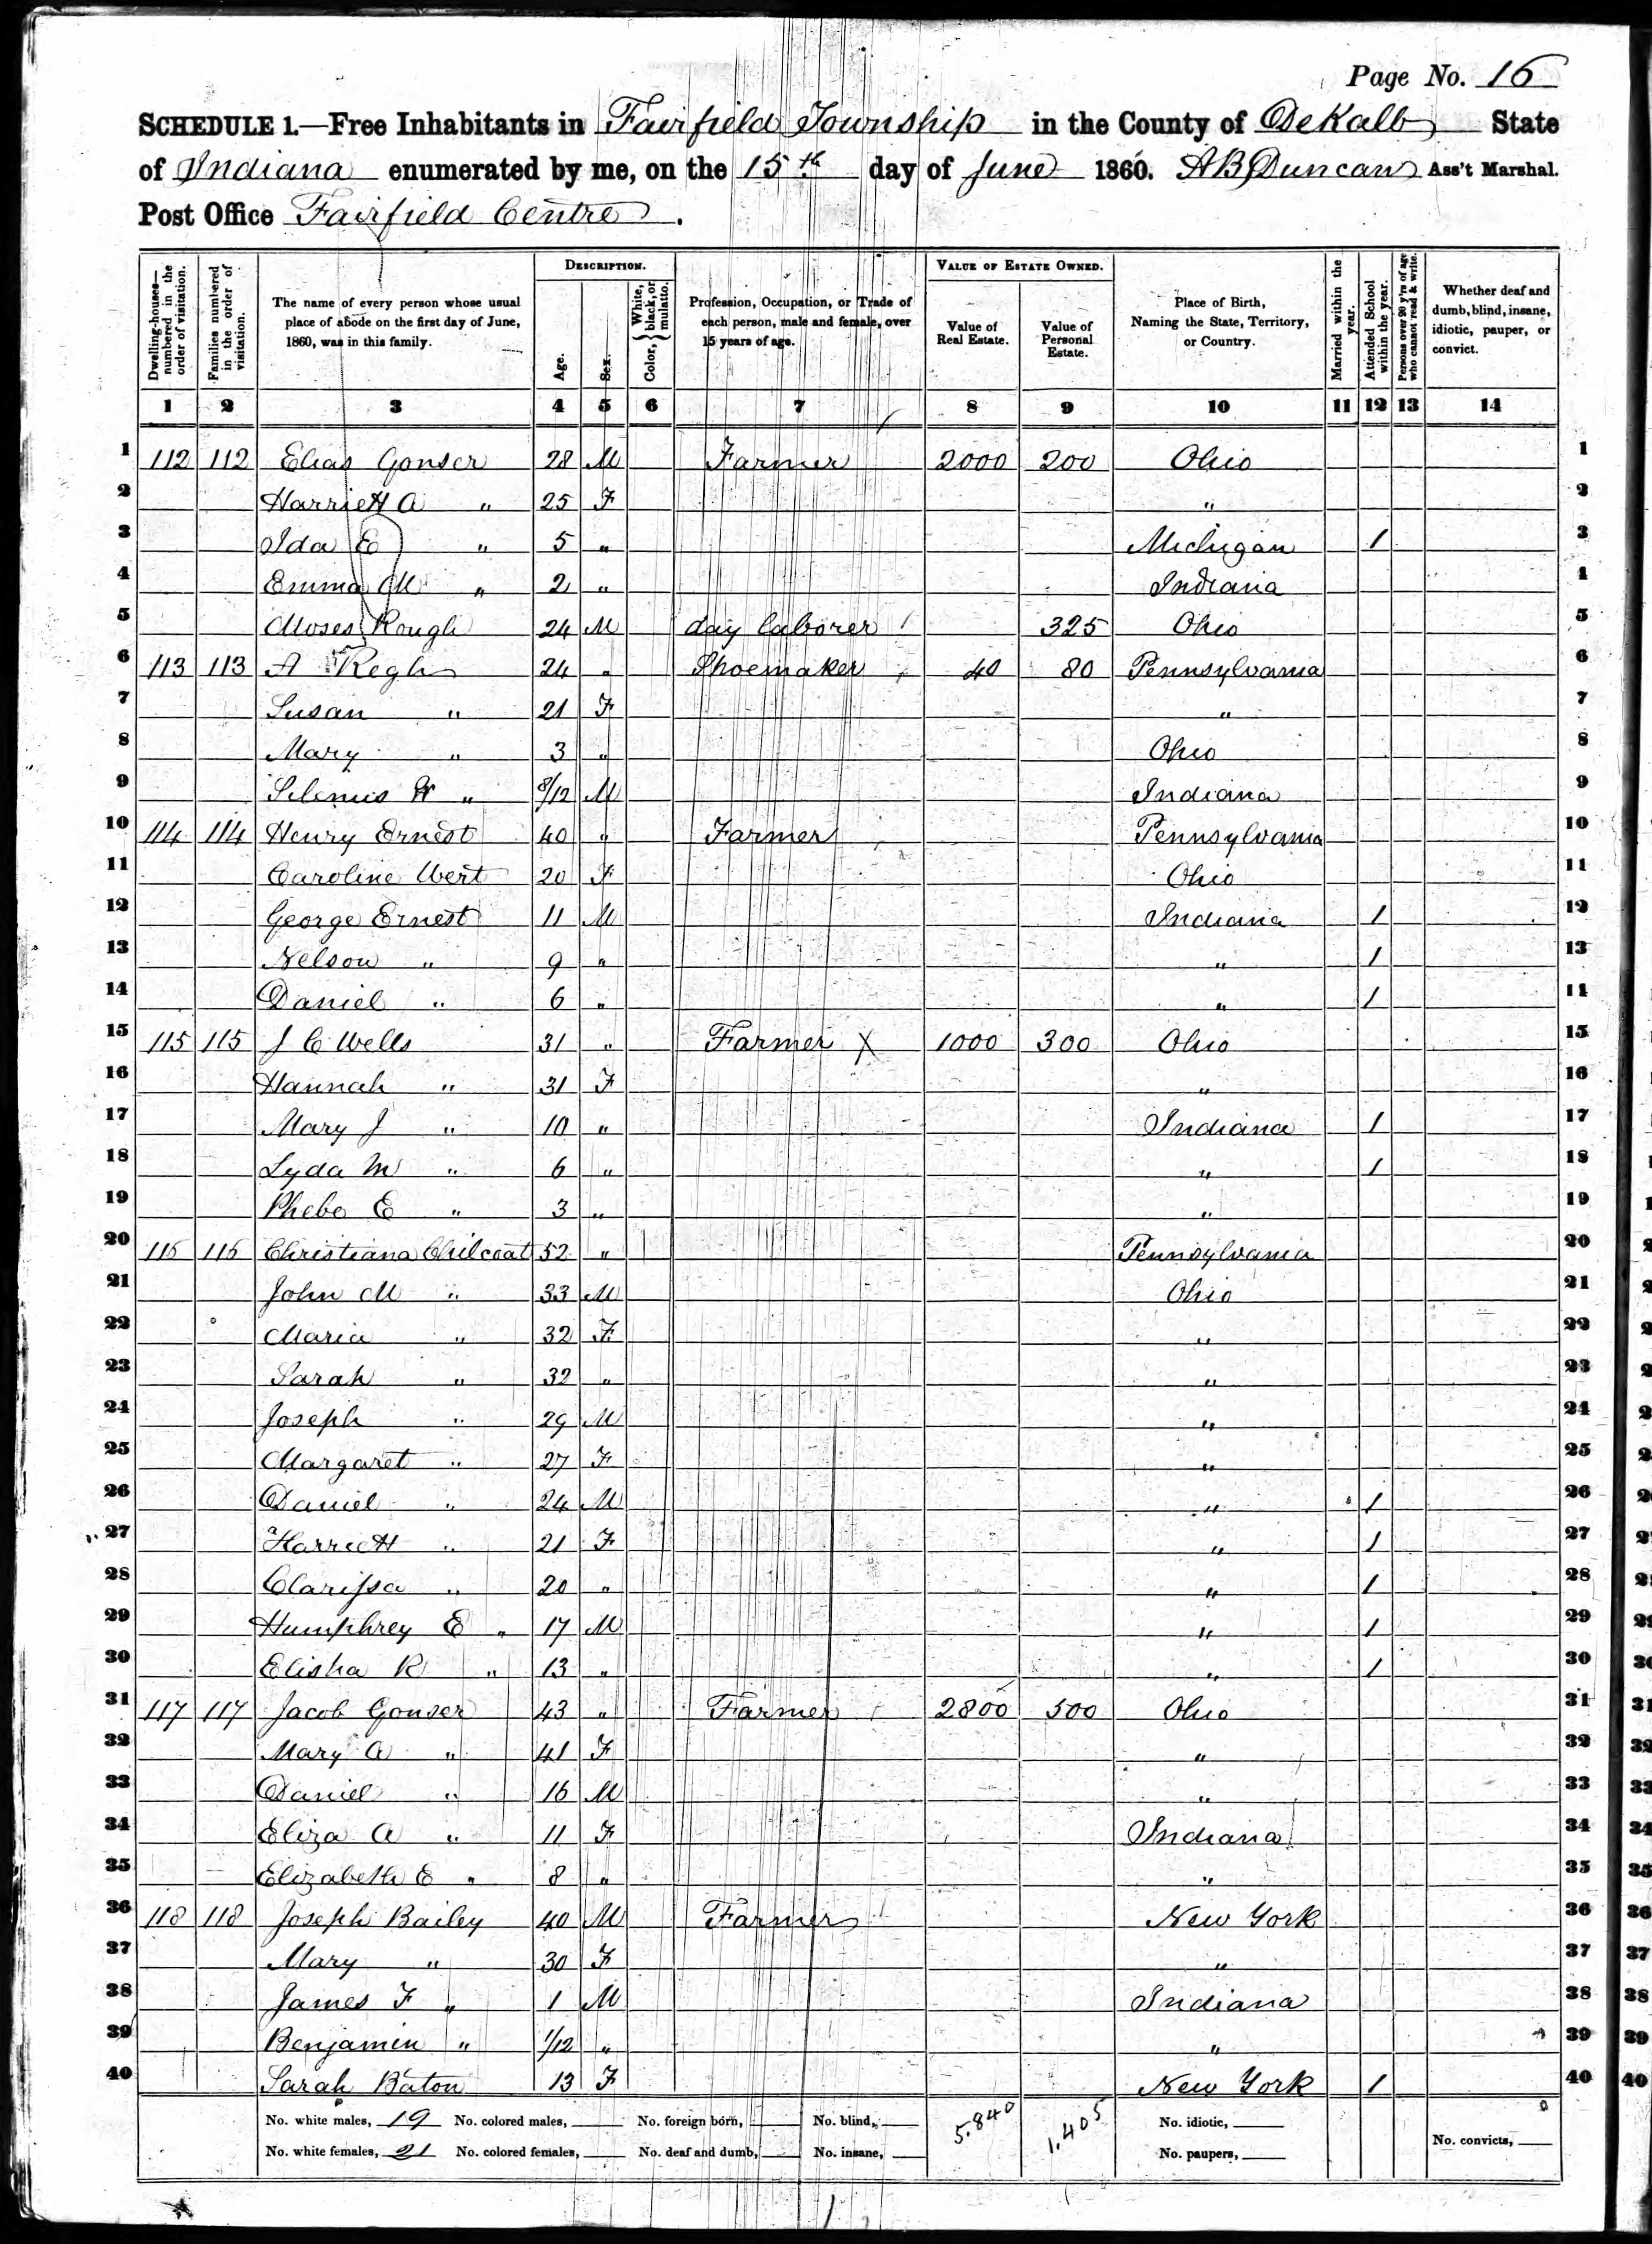 Page No. 16
SCHEDULE 1.—Free Inhabitants in Fairfield Township in the County of DeKalb State
of Indiana enumerated by me, on the 15th day of June 1860. AB Duncan Ass't Marshal.
Post Office Fairfield Centre.
Dwelling-houses—numbered in the order of visitation. Families numbered in the order of visitation. The name of every person whose usual place of abode on the first day of June, 1860, was in this family. DESCRIPTION. Age. Sex. Color, { White, black, or mulatto. Profession, Occupation, or Trade of each person, male and female, over 15 years of age. VALUE OF ESTATE OWNED. Value of Real Estate. Value of Personal Estate. Place of Birth, Naming the State, Territory, or Country. Married within the year. Attended School within the year. Persons over 20 y'rs of age who cannot read & write. Whether deaf and dumb, blind, insane, idiotic, pauper, or convict.
1 2 3 4 5 6 7 8 9 10 11 12 13 14
1 112 112 Elias Gonser 28 M Farmer 2000 200 Ohio 1
2 Harriett A " 25 F " 2
3 Ida E " 5 " Michigan / 3
4 Emma M " 2 " Indiana 4
5 Moses Rough 24 M day laborer 325 Ohio 5
6 113 113 A Regh 24 " Shoemaker 40 80 Pennsylvania 6
7 Susan " 21 F " 7
8 Mary " 3 " Ohio 8
9 W " 8/12 M Indiana 9
10 114 114 Henry Ernest 40 " Farmer Pennsylvania 10
11 Caroline Wert 20 F Ohio 11
12 George Ernest 11 M Indiana / 12
13 Nelson " 9 " " / 13
14 Daniel " 6 " " / 14
15 115 115 J C Wells 31 " Farmer X 1000 300 Ohio 15
16 Hannah " 31 F " 16
17 Mary J " 10 " Indiana / 17
18 Lyda M " 6 " " / 18
19 Phebe E " 3 " " 19
20 116 116 Christiana Chilcoat 52 " Pennsylvania 20
21 John M " 33 M Ohio 21
22 Maria " 32 F " 22
23 Sarah " 32 " " 23
24 Joseph " 29 M " 24
25 Margaret " 27 F " 25
26 Daniel " 24 M " / 26
27 Harriett " 21 F " / 27
28 Clarissa " 20 " " / 28
29 Humphrey E " 17 M " / 29
30 Elisha R " 13 " " / 30
31 117 117 Jacob Gonser 43 " Farmer 2800 500 Ohio 31
32 Mary A " 41 F " 32
33 Daniel " 16 M " 33
34 Eliza A " 11 F Indiana 34
35 Elizabeth E " 8 " " 35
36 118 118 Joseph Bailey 40 M Farmer New York 36
37 Mary " 30 F " 37
38 James F " 1 M Indiana 38
39 Benjamin " 1/12 " " 39
40 Sarah Baton 13 F New York / 40
No. white males, 19 No. colored males, No. foreign born, No. blind, 5.840 1.405 No. idiotic,
No. white females, 21 No. colored females, No. deaf and dumb, No. insane, No. paupers, No. convicts,